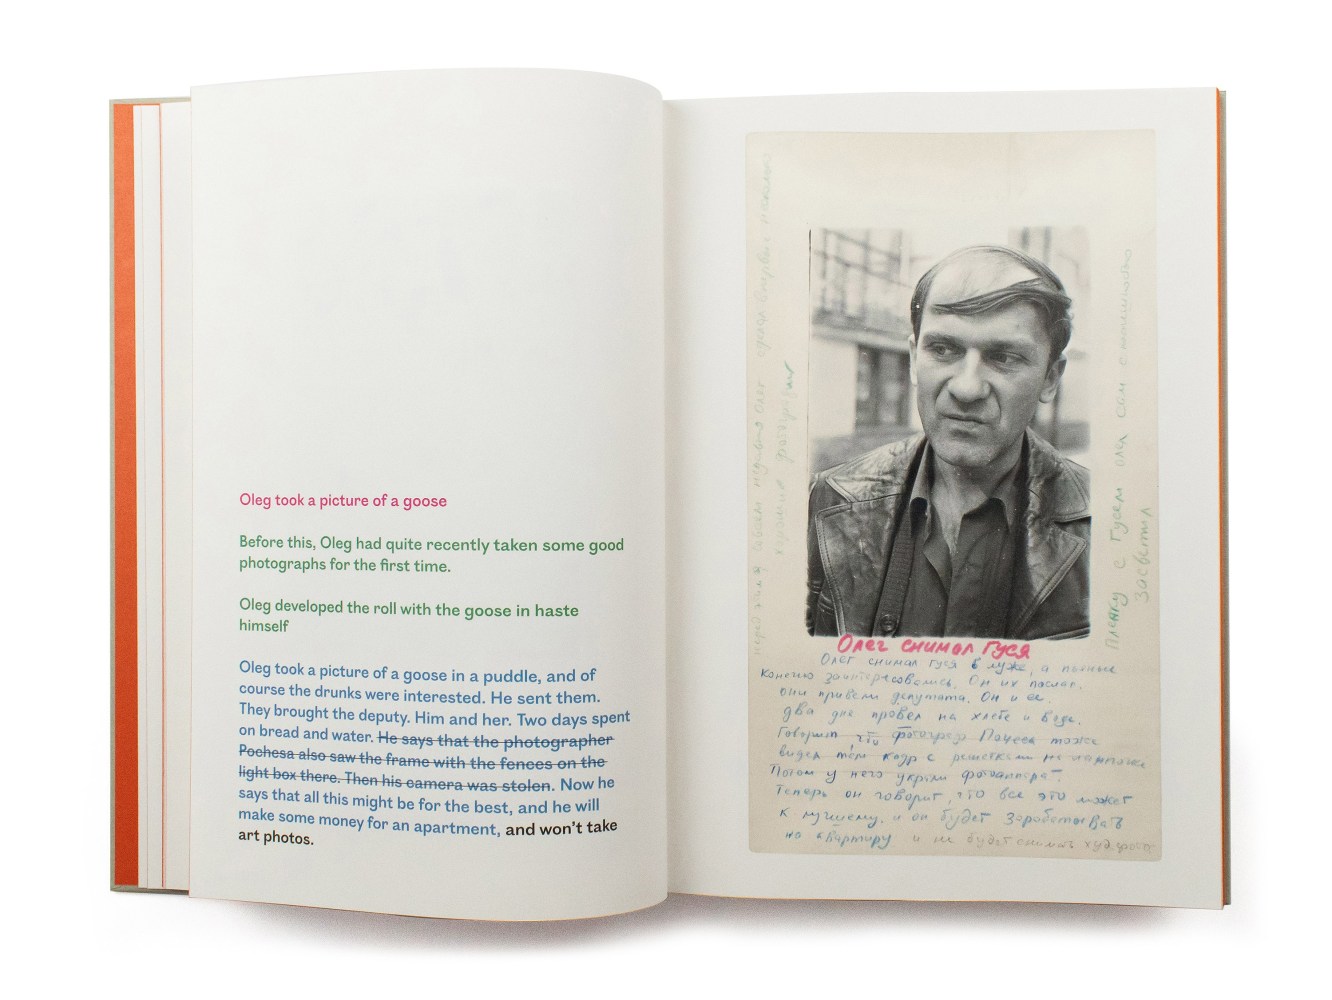 Oleg took a picture of a goose
Before this, Oleg had quite recently taken some good
photographs for the first time.
Oleg developed the roll with the goose in haste
himself
Oleg took a picture of a goose in a puddle, and of
course the drunks were interested. He sent them.
They brought the deputy. Him and her. Two days spent
on bread and water. He says that the photographer
Pochesa also saw the frame with the fences on the
light box there. Then his camera was stolen. Now he
says that all this might be for the best, and he will
make some money for an apartment, and won't take
art photos.
перед этим совсем недавно Олег сделал впервые несколько
хороших фотографий
Олег снимал Гуся
Олег снимал гуся в луже, а пьяные
конечно заинтересовались. Он их послал.
они привели депутата. Он и ее.
два дня провел на хлебе и воде.
Говорит что фотограф Почеса тоже
видел там кадр с решетками на
Потом у него украли фотоаппарат.
Теперь он говорит, что все это может
к лучшему. и он будет зарабатывать
на квартиру и не будет снимать худ. фото
Пленку с Гусем олег сам
засветил